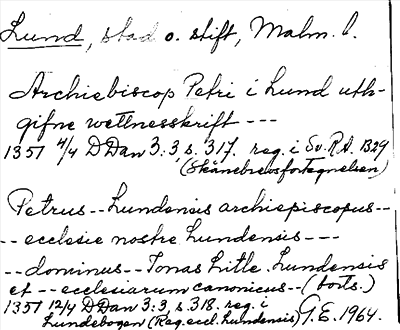 Lund, stad o. stift, Malm. l.
Archiebiscop Petri i Lund uth-
gifne wettnesskrift ---
1351 4/4 DDan 3:3, s. 317. reg. i Sv. R.A. B29
(Skånebrevsfortegnelsen)
Petrus -- Lundensis archiepiscopus --
-- ecclesie nostre Lundensis ---
-- dominus -- Jonas Litle Lundensis
et -- ecclesiarum canonicus -- (forts.)
1351 12/4 DDan 3:3, s. 318. reg. i
Lundebogen (Reg. eccl. Lundensis) G.E. 1964.